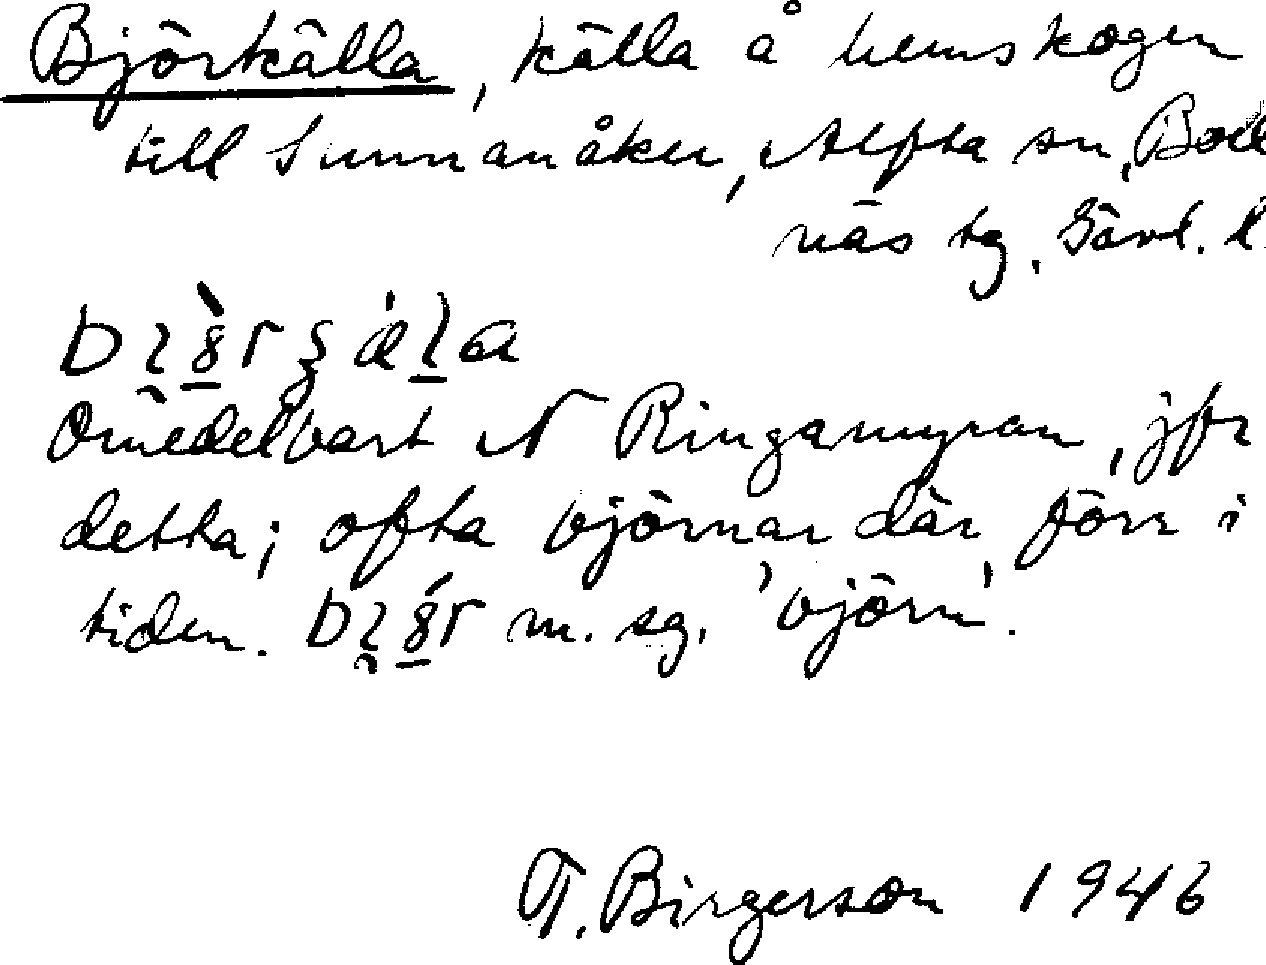 Björkälla, källa å hemskogen
till Sunnanåker, Alfta sn, Boll
näs tg, Gävl. l.
Omedelbart N Ringamyran, jfr
detta; ofta björnar där förr i
tiden. m. sg. 'björn'.
T. Birgerson 1946